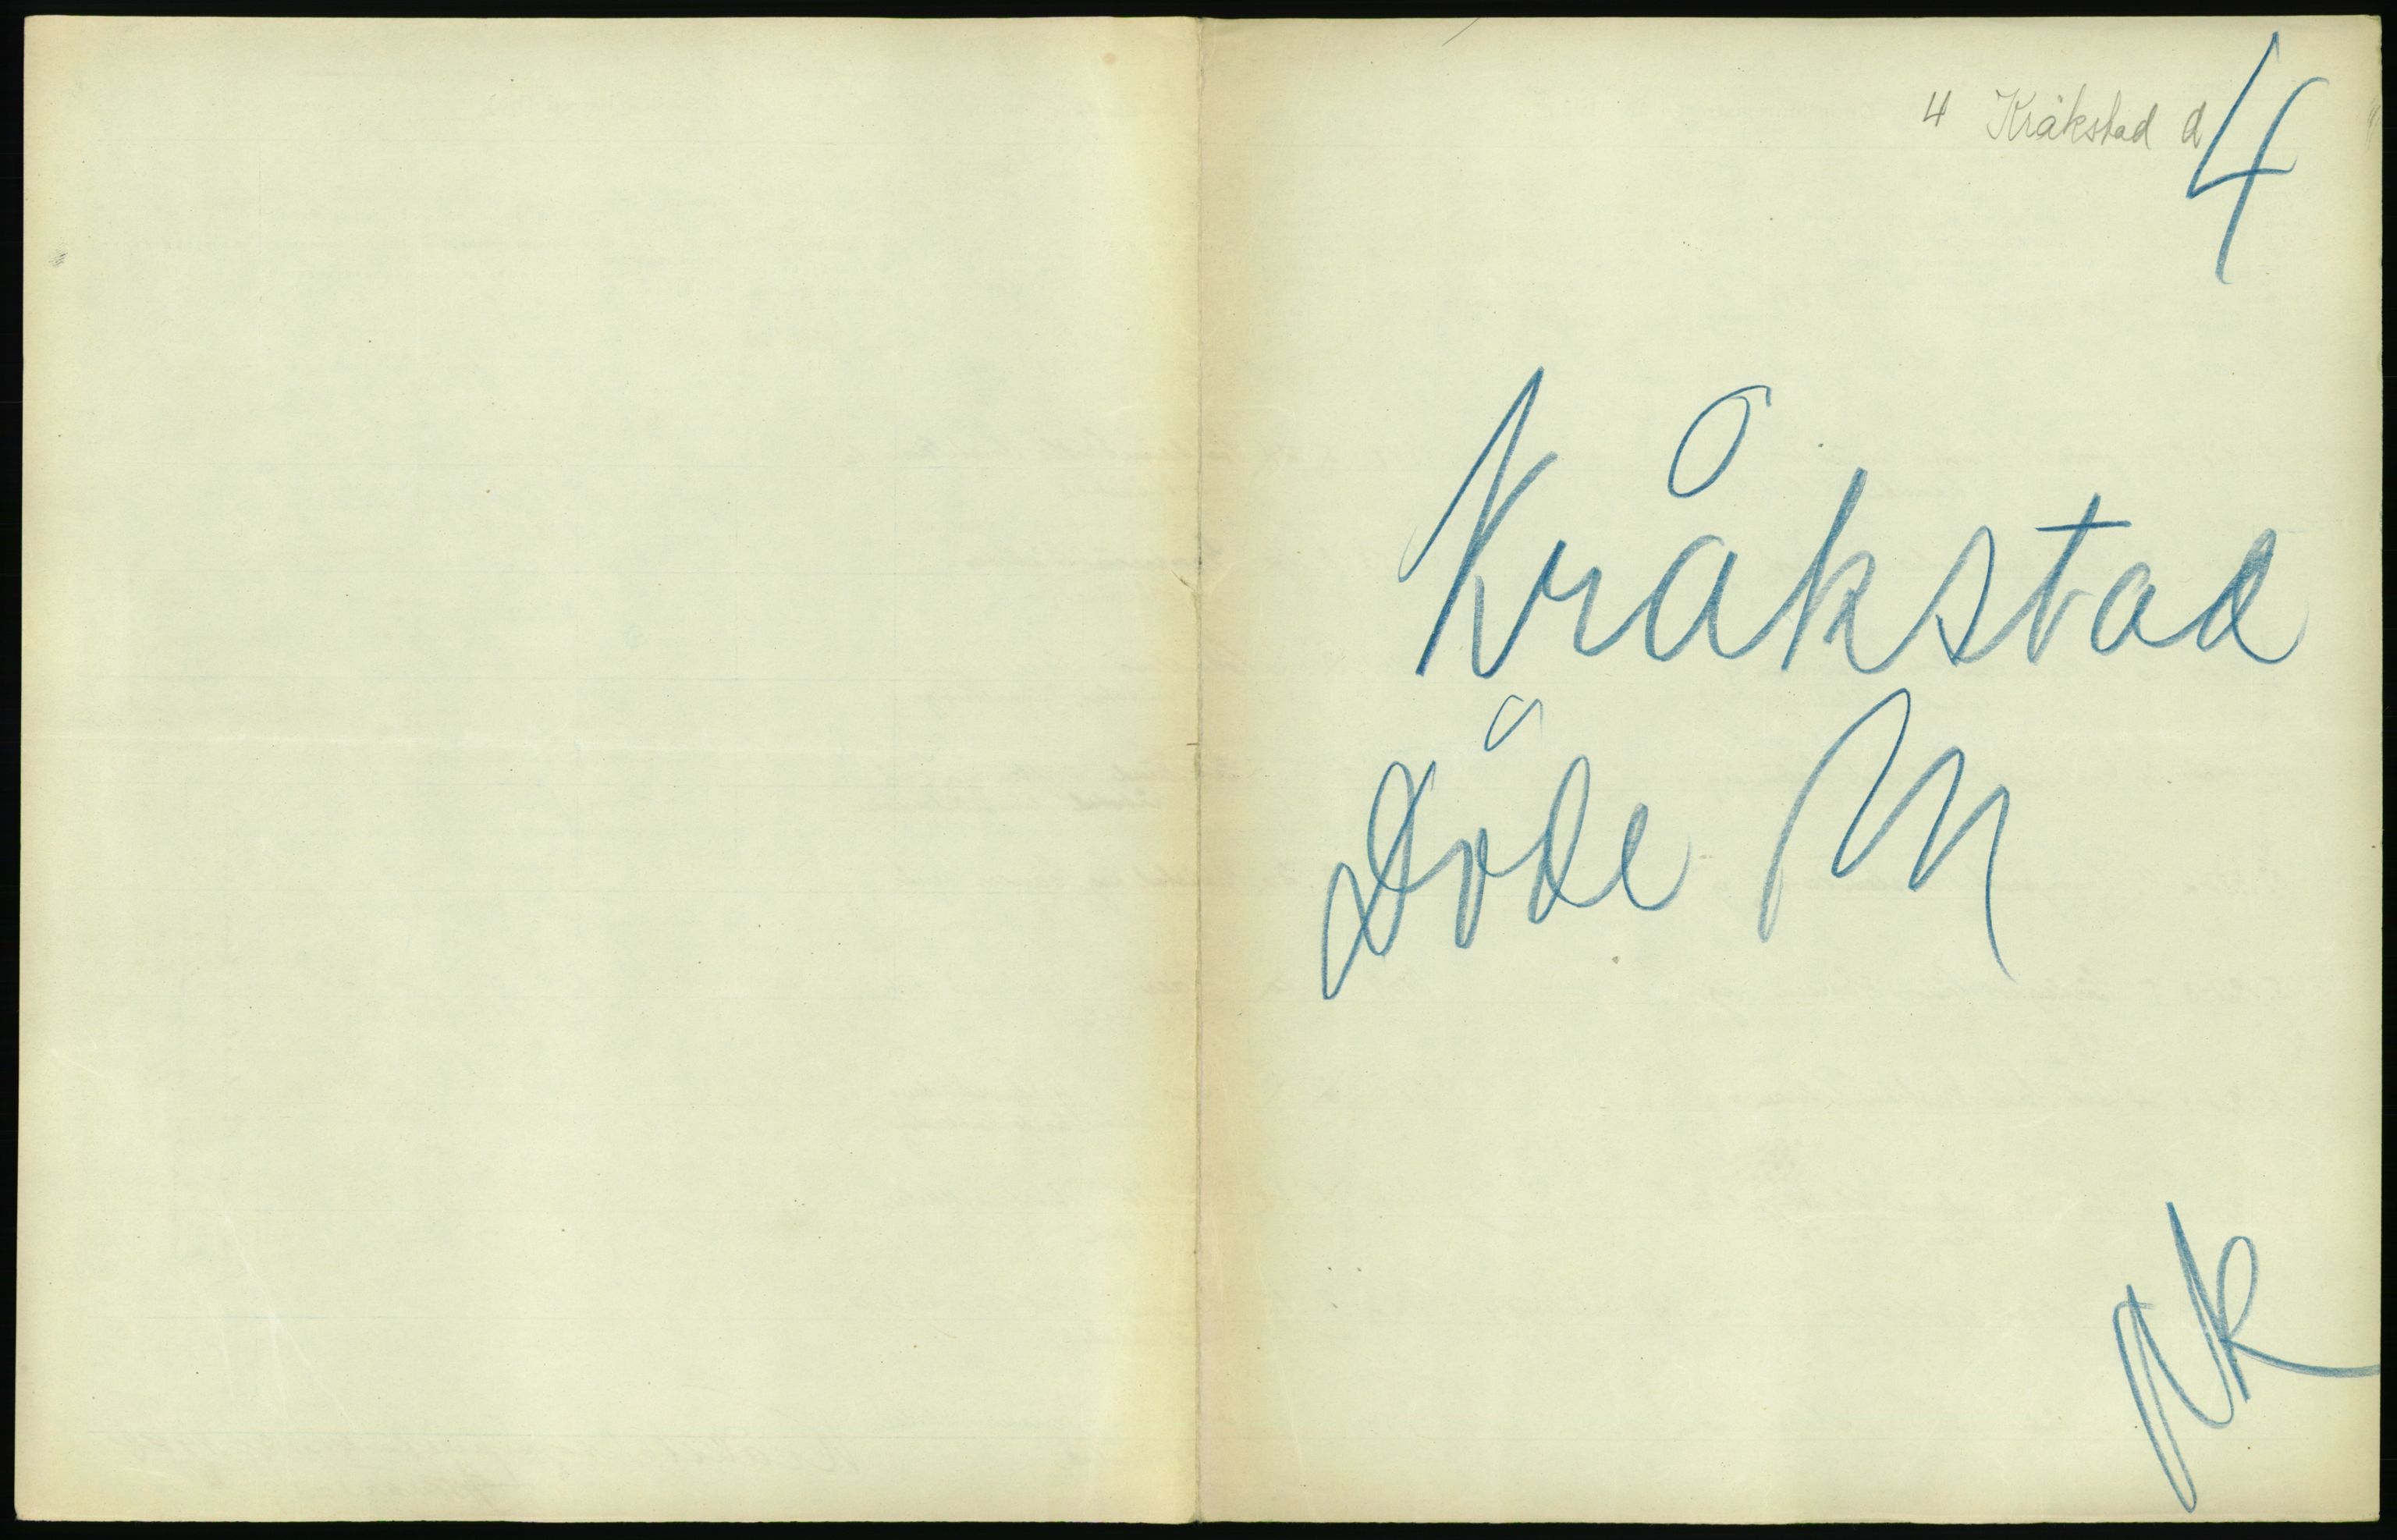 4 Kråkstad d
4
Kråkstad
Döde M
NK